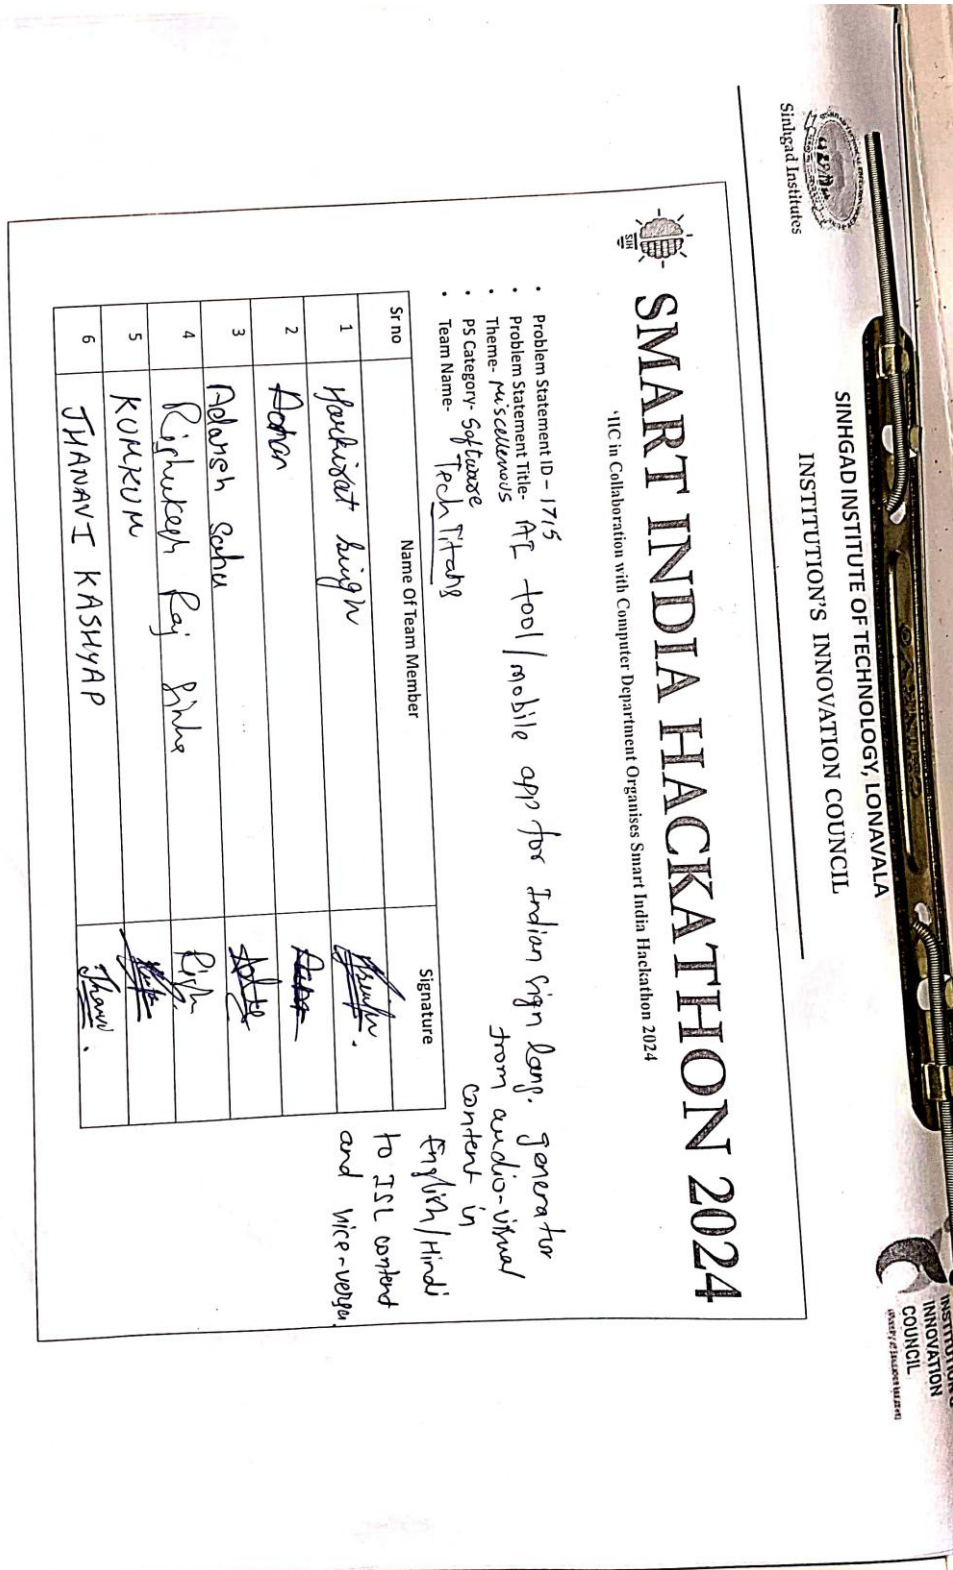 Sinhgad Institutes
SINHGAD INSTITUTE OF TECHNOLOGY, LONAVALA
INSTITUTION'S INNOVATION COUNCIL
INSTITUTION'S
INNOVATION
COUNCIL
SIH
SMART INDIA HACKATHON 2024
IIC in Collaboration with Computer Department Organises Smart India Hackathon 2024
• Problem Statement ID – 1715
• Problem Statement Title- AI tool/mobile app for Indian sign lang. generator
from audio-visual
content in
English/Hindi
to ISL content
and vice-versa.
• Theme- Miscellenous
• PS Category- Software
• Team Name- Tech Titans
Sr no Name Of Team Member Signature
1 Harkirat Singh
2
3 Adarsh Sahu
4 Rishukesh Raj Sinha Rish
5 KUMKUM
6 JHANAVI KASHYAP Jhanvi.